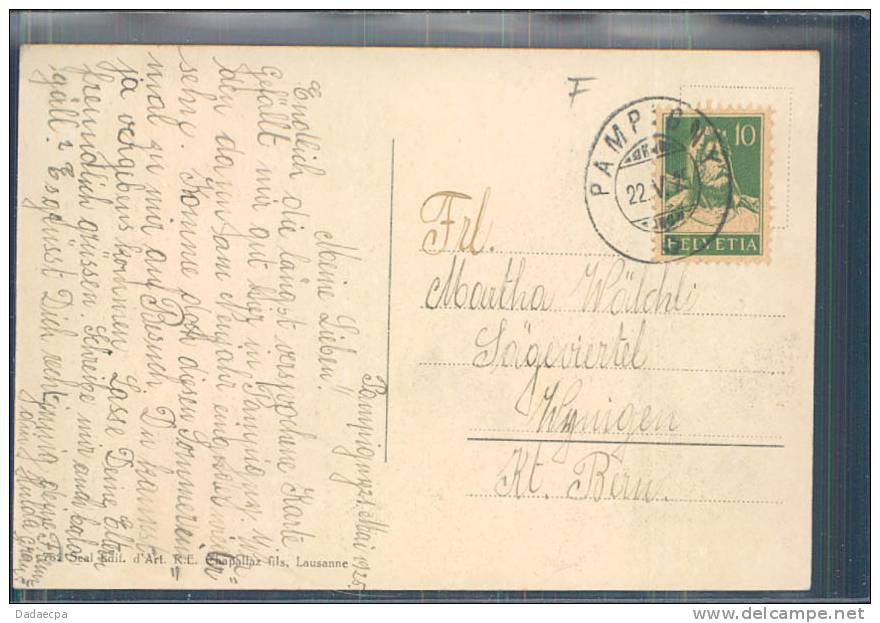 Pampigny, 21. Mai 1925.
Meine Lieben!
Endlich die längst versprochene Karte
gefällt mir gut hier in Pampigny.
den
sehr. Komme doch diesen Sommer ein=
mal zu mir auf Besuch. Du kannst
ja vergebens kommen. Lasse Deine Eltern
freundlich grüssen. Schreibe mir auch bald
gäll? Es grüsst Dich recht innig deine
Hulda
F
PAMPIGNY
22.V.
10
HELVETIA
Frl.
Martha Wälchli
Sägeviertel
Wynigen
Kt. Bern.
Seal Edit. d'Art. R.E. Chapallaz fils, Lausanne
Dadaecpa
http://www.delcampe.net